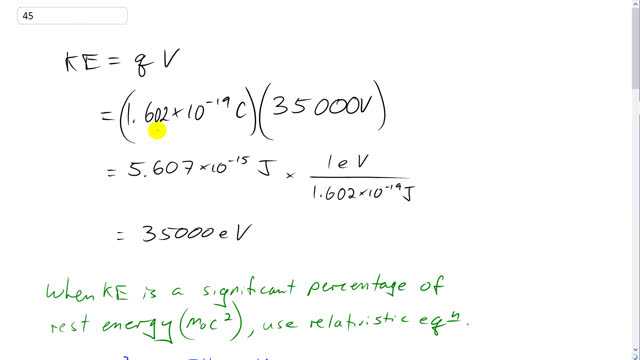 45
KE = q V
= (1.602 × 10⁻¹⁹ C)(35000V)
= 5.607 × 10⁻¹⁵ J × 1eV / 1.602 × 10⁻¹⁹ J
= 35000 eV
When KE is a significant percentage of
rest energy (m₀c²), use relativistic eqⁿ.